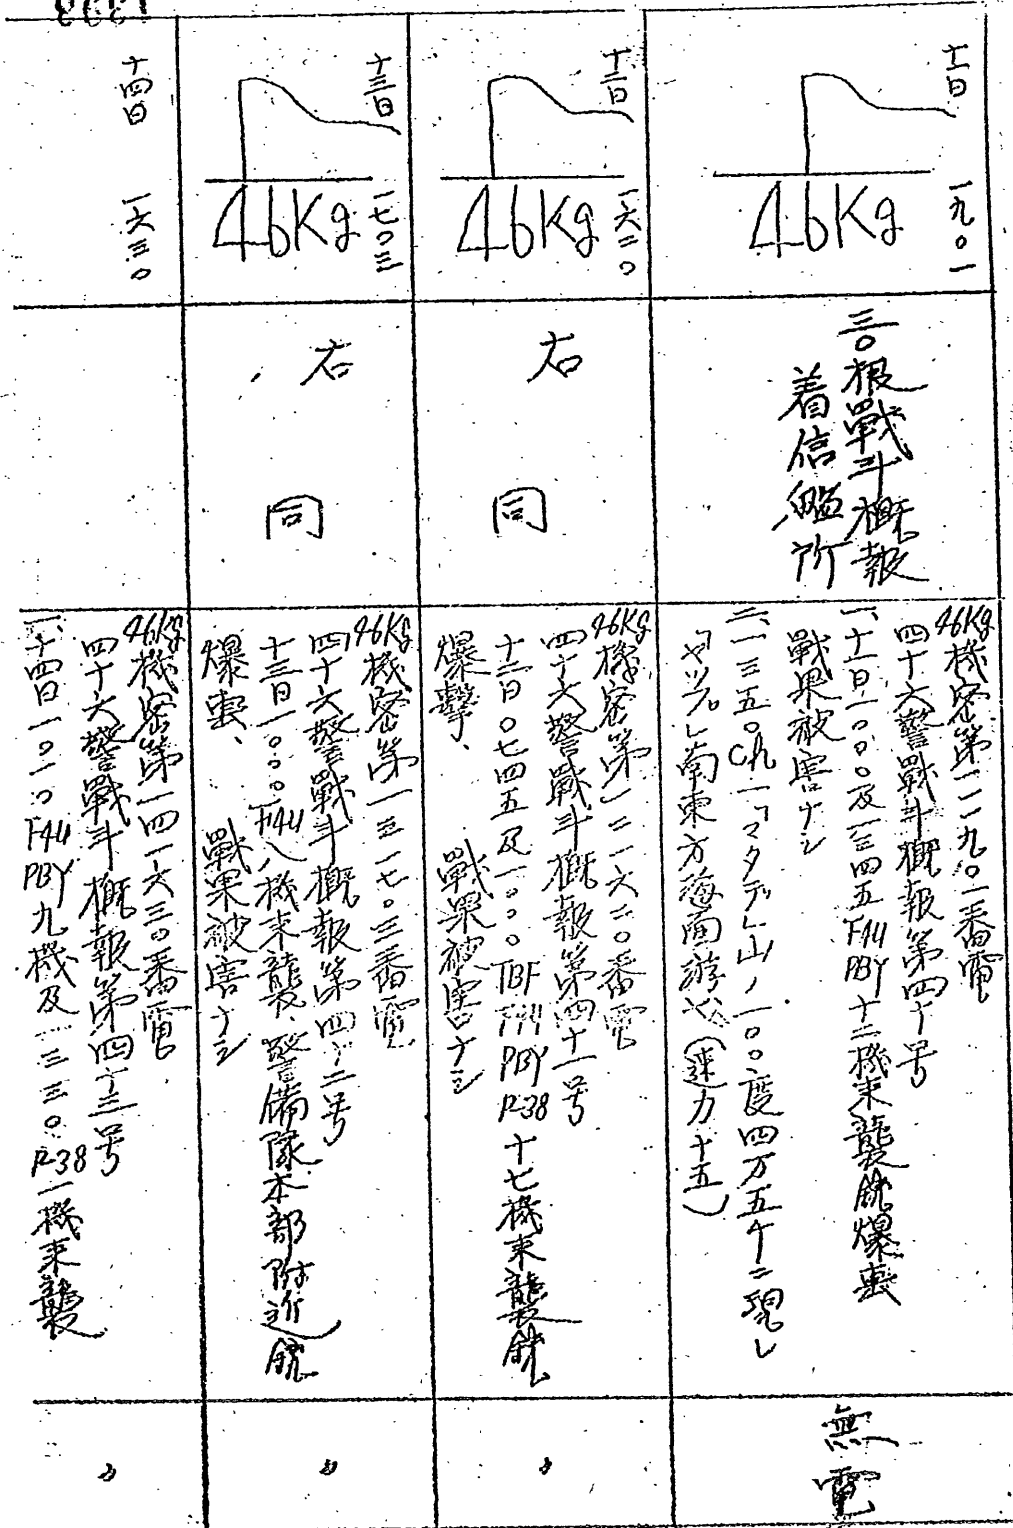 十一日 一九〇一
46Kg
三〇根戰斗概報
着信艦所
46Kg機密第一一一九〇一番電
四十六警戰斗概報第四十号
一、十一日一〇〇〇及一三四五F4U PBY十二機来襲銃爆撃
戰果被害ナシ
二、一三五〇 Ch一「マタデ」山ノ一〇〇度四万五千ニ現レ
「ヤップ」南東方海面游弋(速力十五)
無電
十二日 一六二〇
46Kg
右 同
46Kg機密第一二一六二〇番電
四十六警戰斗概報第四十一号
十二日〇七四五及一〇〇〇TBF F4U PBY P-38十七機来襲銃
爆撃、 戰果被害ナシ
〃
十三日 一七〇三
46Kg
右 同
46Kg機密第一三一七〇三番電
四十六警戰斗概報第四十二号
十三日一〇〇〇F4U八機来襲、警備隊本部附近銃
爆撃、 戰果被害ナシ
〃
十四日 一六三〇
46Kg機密第一四一六三〇番電
四十六警戰斗概報第四十三号
一、十四日一〇一〇F4U PBY九機及一三三〇P-38一機来襲
〃